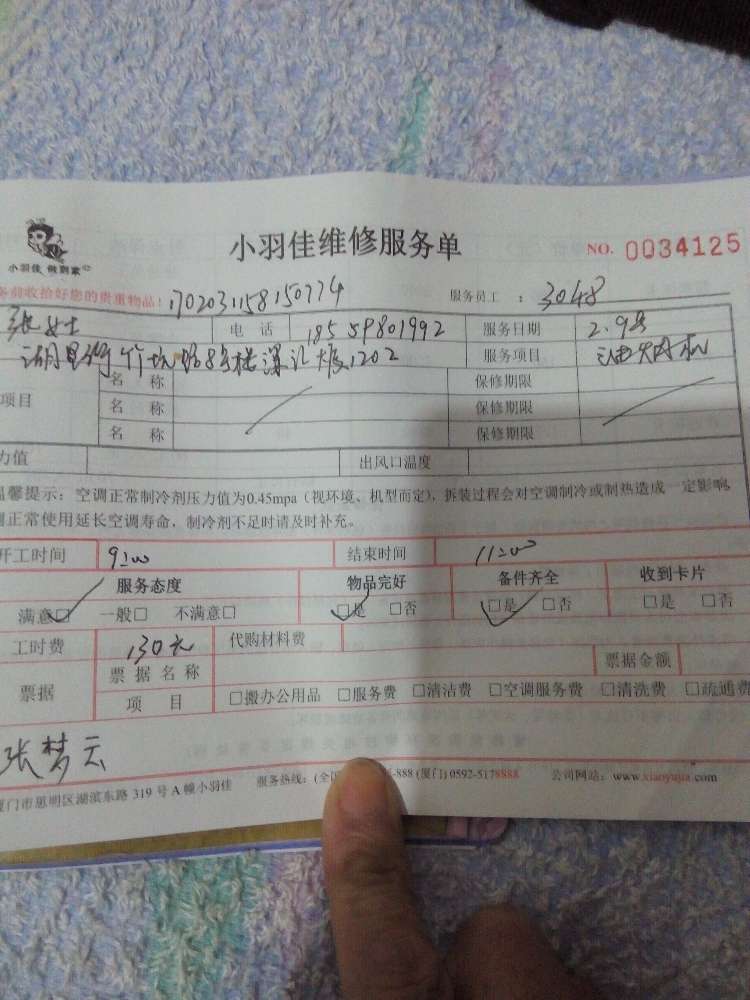 小羽佳维修服务单
NO. 0034125
小羽佳 做到家
务前收拾好您的贵重物品! 1702031158150774 服务员工: 3048
张女士 电话 18559801992 服务日期 2.9号
湖里 竹坑路8号楼深汇大厦1202 服务项目 油烟机
项目 名称 保修期限
名称 保修期限
名称 保修期限
力值 出风口温度
温馨提示: 空调正常制冷剂压力值为0.45mpa (视环境、机型而定), 拆装过程会对空调制冷或制热造成一定影响,
调正常使用延长空调寿命, 制冷剂不足时请及时补充。
开工时间 9:00 结束时间 11:00
服务态度 物品完好 备件齐全 收到卡片
满意□ 一般□ 不满意□ □是 □否 □是 □否 □是 □否
工时费 130元 代购材料费
票据 票据名称 票据金额
项目 □搬办公用品 □服务费 □清洁费 □空调服务费 □清洗费 □疏通费
张梦云
厦门市思明区湖滨东路 319 号 A 幢小羽佳 服务热线: (全国 -888 (厦门) 0592-5178888 公司网站: www.xiaoyujia.com